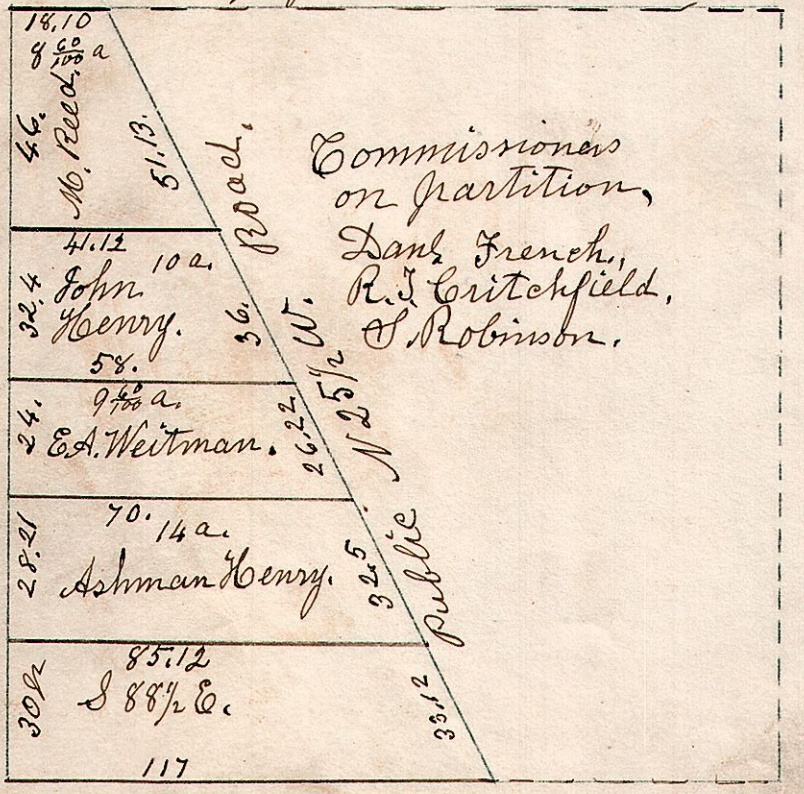 18.10
8 60/100 a
46.
M. Reed.
51.13.
41.12
10 a.
32.4
John
Henry.
36.
58.
9 60/100 a.
24.
E.A. Weitman.
26.22
70.
14 a.
28.21
Ashman Henry.
32.5
85.12
30 1/2
S 88 1/2 E.
33.12
117
Public Road.
N 25 1/2 W.
Commissioners
on partition,
Danl French,
R.J. Critchfield,
S. Robinson.